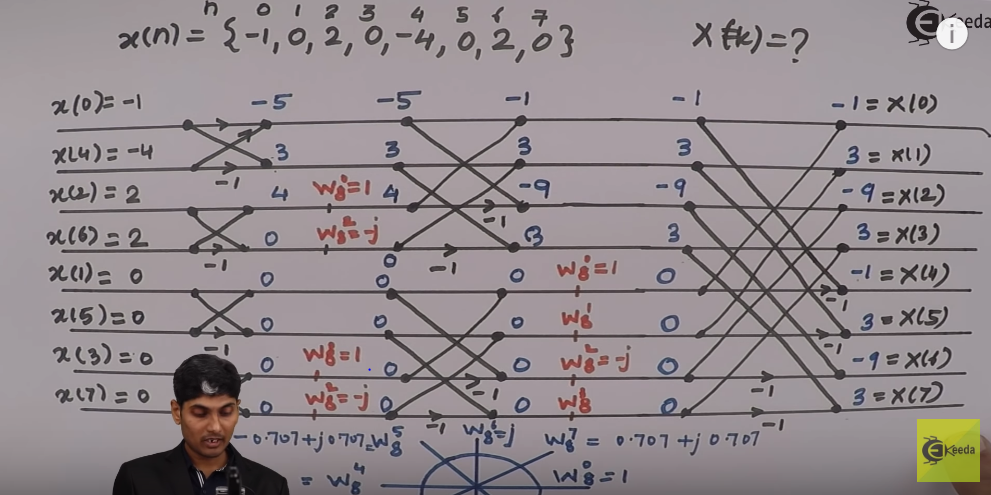 n 0 1 2 3 4 5 6 7
x(n) = {-1, 0, 2, 0, -4, 0, 2, 0} X(k) = ?
Keeda
i
x(0) = -1 -5 -5 -1 -1 -1 = X(0)
x(4) = -4 -1 3 3 3 3 3 = X(1)
x(2) = 2 4 W₈⁰=1 4 -9 -1 -9 -9 = X(2)
x(6) = 2 -1 0 W₈²=-j 0 -1 3 3 3 = X(3)
x(1) = 0 0 0 0 W₈⁰=1 0 -1 -1 = X(4)
x(5) = 0 -1 0 0 0 W₈¹ 0 -1 3 = X(5)
x(3) = 0 0 W₈⁰=1 0 -1 0 W₈²=-j 0 -1 -9 = X(6)
x(7) = 0 0 W₈²=-j 0 -1 0 W₈³ 0 -1 3 = X(7)
-0.707+j0.707=W₈⁵ W₈⁶=j W₈⁷ = 0.707+j0.707
= W₈⁴ W₈⁰=1
Keeda